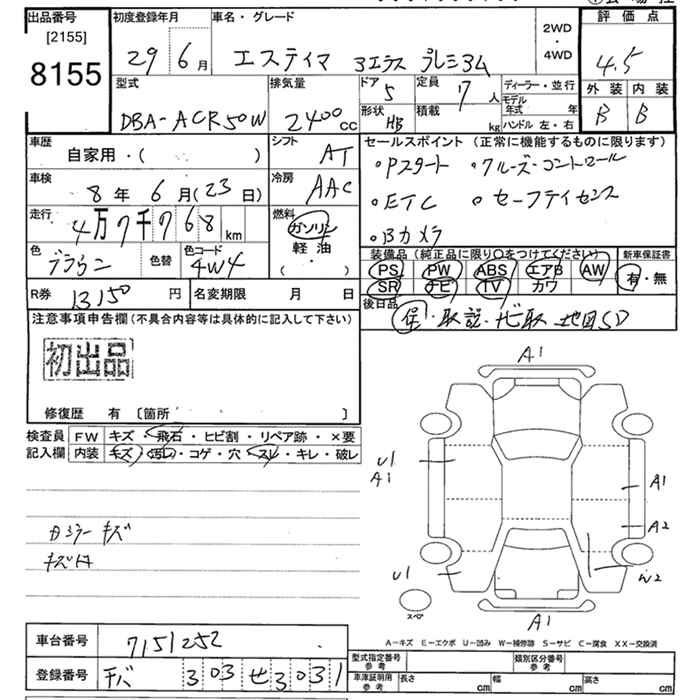 出品番号
[2155]
8155
初度登録年月
29 6月
車名・グレード
エスティマ アエラス プレミアム
2WD
・
4WD
評価点
4.5
外装 内装
B B
型式
DBA-ACR50W
排気量
2400cc
ドア
5
定員
7人
形状
HB
積載
kg
ディーラー・並行
モデル年式 年
ハンドル 左・右
車歴
自家用・( )
シフト
AT
車検
8年6月(23日)
冷房
AAC
走行
4万7千768km
燃料
ガソリン
軽油
( ・ )
色
ブラウン
色替
色コード
4W4
R券
13150円
名変期限 月 日
セールスポイント(正常に機能するものに限ります)
・Pスタート ・クルーズ・コントロール
・ETC ・セーフティセンス
・Bカメラ
装備品(純正品に限り○をつけてください)
PS PW ABS エアB AW
SR ナビ TV カワ
新車保証書
有・無
後日品
保・取説・ナビ取 地図SD
注意事項申告欄(不具合内容等は具体的に記入して下さい)
初出品
修復歴 有 〔箇所 〕
検査員記入欄
FW キズ・飛石・ヒビ割・リペア跡・×要
内装 キズ・汚レ・コゲ・穴・スレ・キレ・破レ
カミラーキズ
A1
U1
A1
A1
A2
U1
W2
スペア
A1
A-キズ E-エクボ U-凹み W-補修跡 S-サビ C-腐食 XX-交換済
車台番号
7151252
登録番号
チバ 303 せ 3031
型式指定番号 参考
類別区分番号 参考
車庫証明用 参考
長さ cm 幅 cm 高さ cm